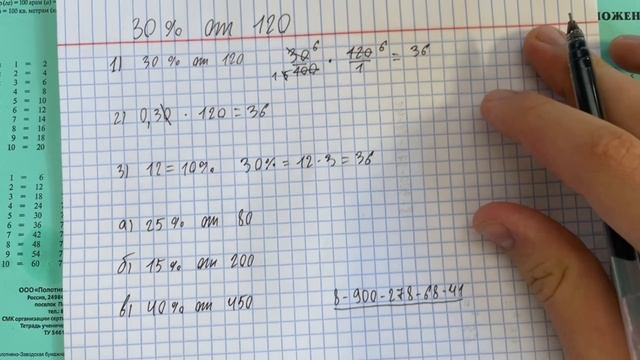 30 % от 120
1) 30 % от 120 30/100 · 120/1 = 36
2) 0,30 · 120 = 36
3) 12 = 10% 30% = 12 · 3 = 36
а) 25 % от 80
б) 15 % от 200
в) 40 % от 450
8-900-278-68-41
1 = 2
2 = 4
3 = 6
4 = 8
5 = 10
6 = 12
7 = 14
8 = 16
9 = 18
10 = 20
1 = 6
2 = 12
3 = 18
4 = 24
5 = 30
6 = 36
7 = 42
8 = 48
9 = 54
10 = 60
ООО«Полотня
Россия, 2498
поселок П
тел.:
СМК организации серти
Тетрадь ученичес
ТУ 5461